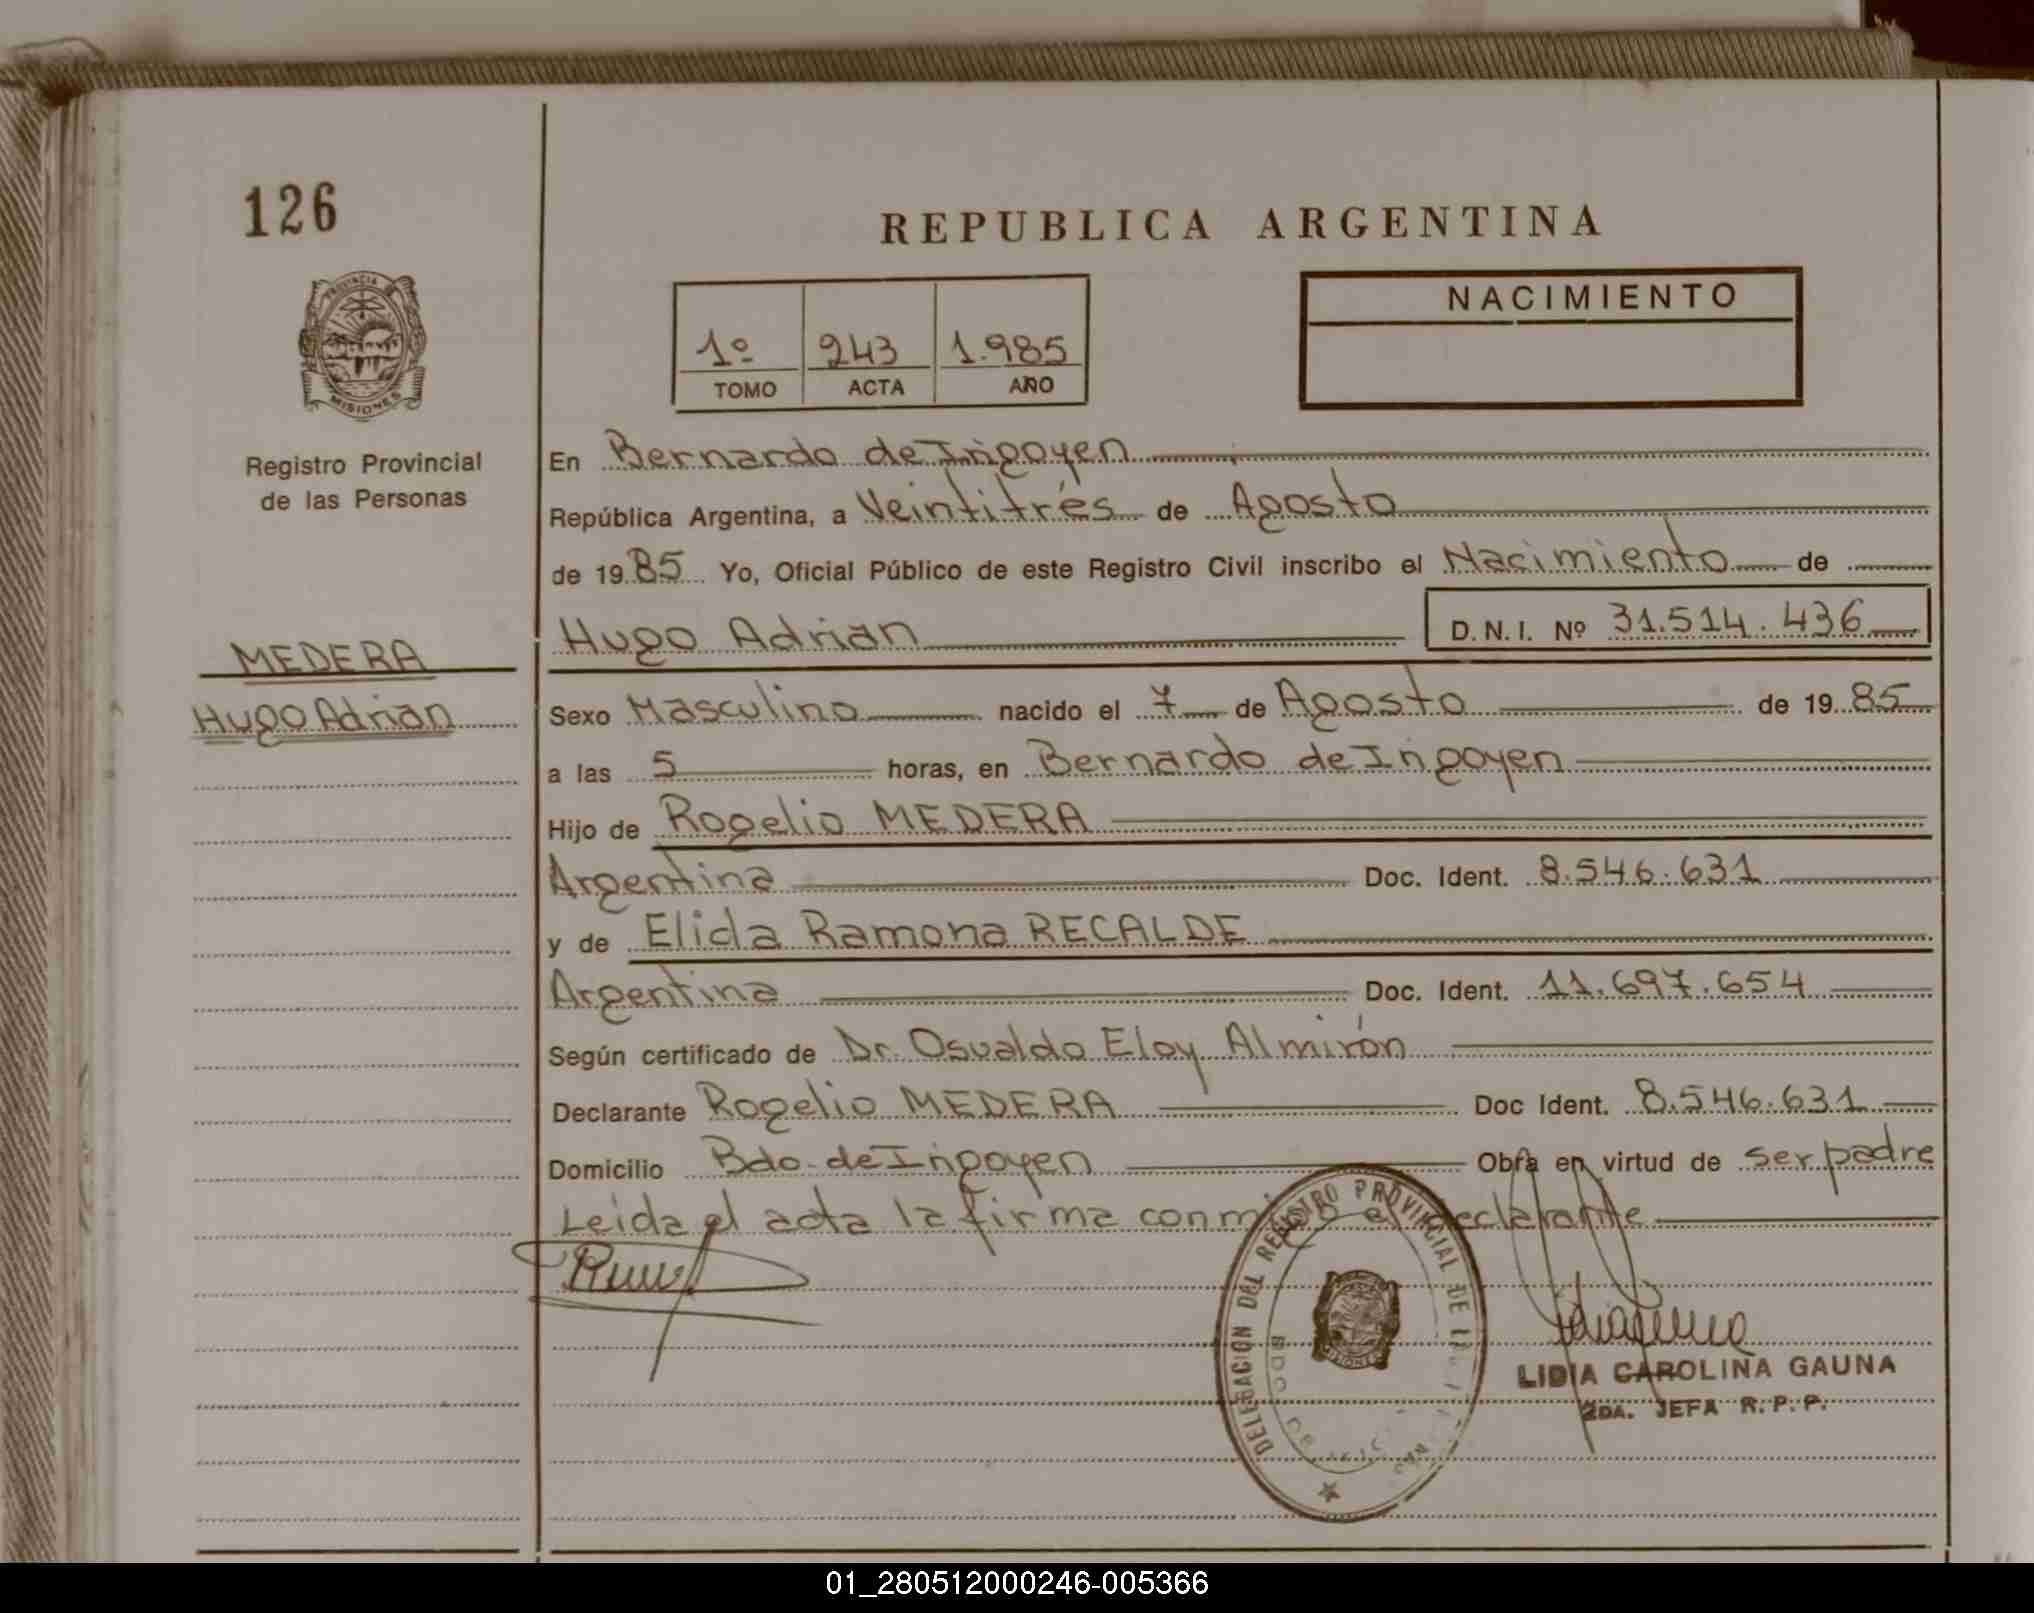 126
REPUBLICA ARGENTINA
PROVINCIA DE
MISIONES
NACIMIENTO
1º 243 1.985
TOMO ACTA AÑO
Registro Provincial
de las Personas
En Bernardo de Irigoyen
República Argentina, a Veintitrés de Agosto
de 19 85 Yo, Oficial Público de este Registro Civil inscribo el Nacimiento de
Hugo Adrian D.N.I. Nº 31.514.436
MEDERA
Hugo Adrian
Sexo Masculino nacido el 7 de Agosto de 19 85
a las 5 horas, en Bernardo de Irigoyen
Hijo de Rogelio MEDERA
Argentina Doc. Ident. 8.546.631
y de Elida Ramona RECALDE
Argentina Doc. Ident. 11.697.654
Según certificado de Dr. Osvaldo Eloy Almirón
Declarante Rogelio MEDERA Doc Ident. 8.546.631
Domicilio Bdo. de Irigoyen Obra en virtud de ser padre
Leida el acta la firma conmigo el declarante
DELEGACION DEL REGISTRO PROVINCIAL DE
MISIONES
BDO DE
LIDIA CAROLINA GAUNA
2DA. JEFA R.P.P.
01_280512000246-005366